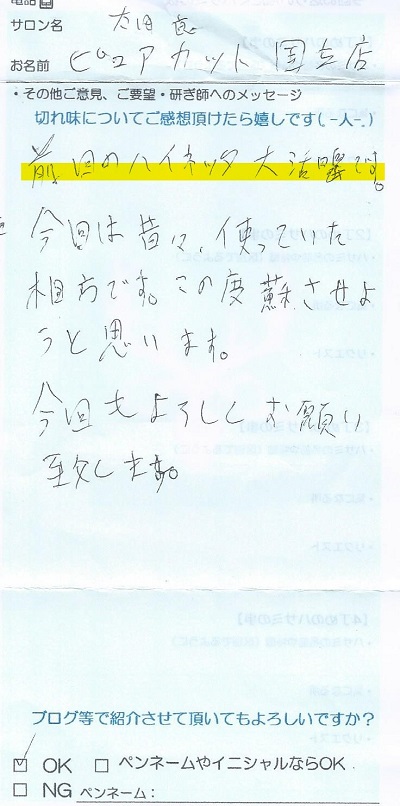 電話
サロン名 太田
お名前 ピュアカット 国立店
・その他ご意見、ご要望・研ぎ師へのメッセージ
切れ味についてご感想頂けたら嬉しです(.-人-.)
前回のハイネッタ大活躍です。
今回は昔々、使っていた
相方です。この度蘇させよ
うと思います。
今回もよろしくお願い
致します。
ブログ等で紹介させて頂いてもよろしいですか?
☑ OK □ ペンネームやイニシャルならOK.
□ NG ペンネーム：